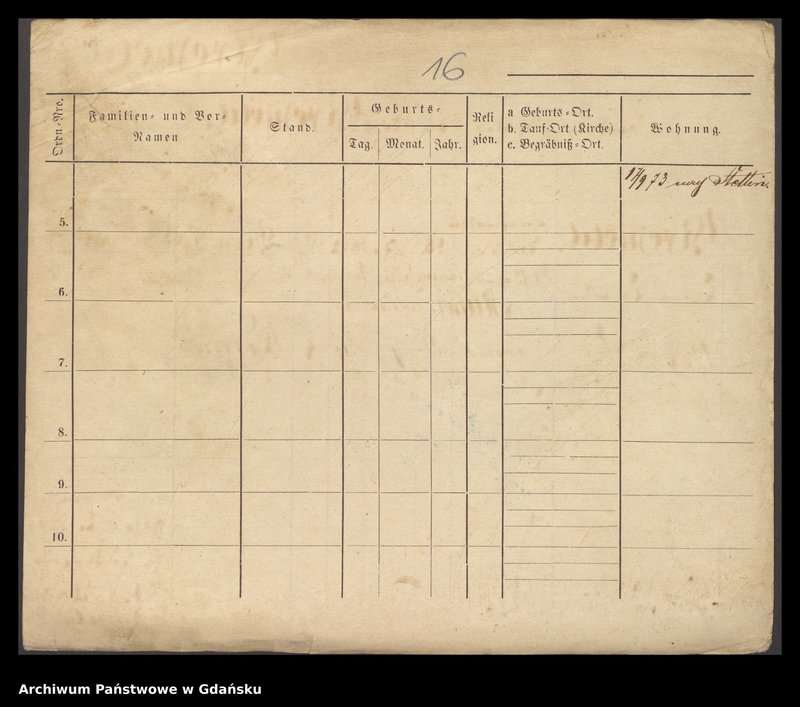 16
Ordn.-Nro.
Familien- und Vor-
Namen
Stand.
Geburts-
Tag.
Monat.
Jahr.
Reli
gion.
a. Geburts-Ort.
b. Tauf-Ort (Kirche)
c. Begräbniß-Ort.
Wohnung.
/9 73 nach Stettin
5.
6.
7.
8.
9.
10.
Archiwum Państwowe w Gdańsku